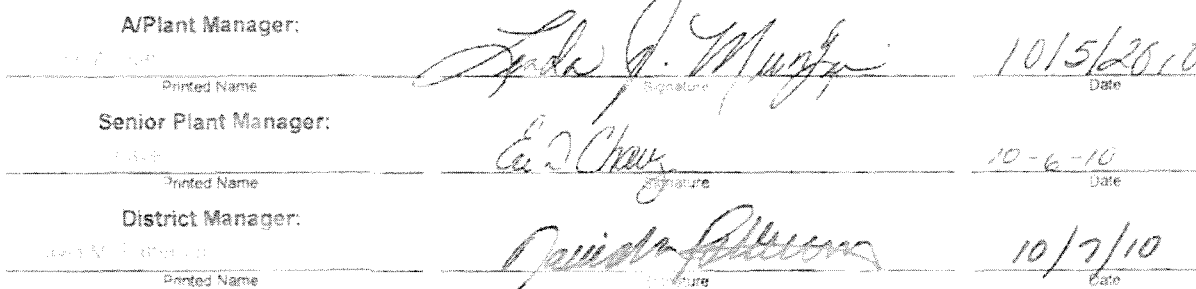 A/Plant Manager:
Linda J. 10/5/2010
Printed Name Signature Date
Senior Plant Manager:
Chavz 10-6-10
Printed Name Signature Date
District Manager:
David M Patterson 10/7/10
Printed Name Signature Date